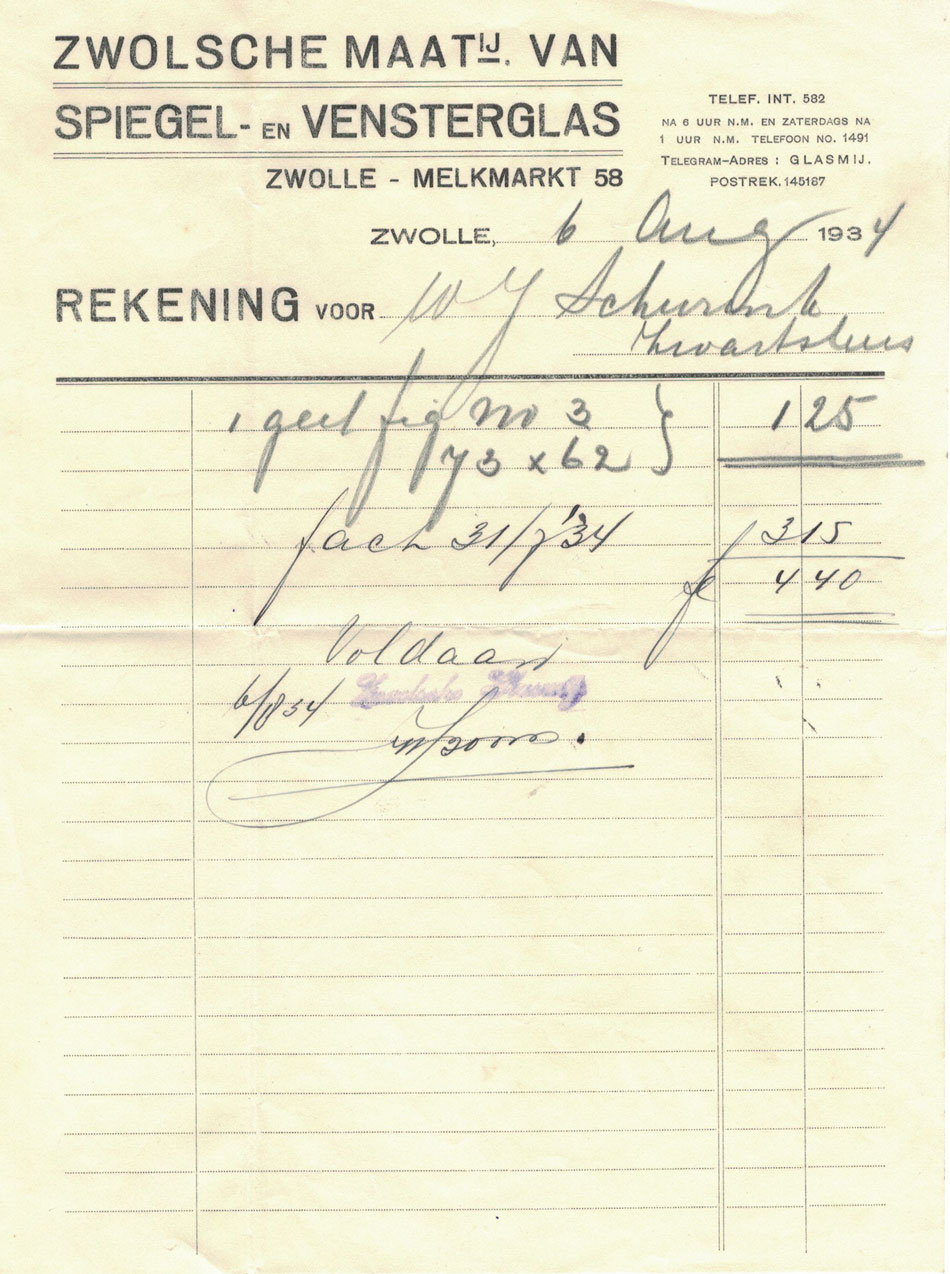 ZWOLSCHE MAATIJ. VAN
SPIEGEL- EN VENSTERGLAS
ZWOLLE - MELKMARKT 58
TELEF. INT. 582
NA 6 UUR N.M. EN ZATERDAGS NA
1 UUR N.M. TELEFOON NO. 1491
TELEGRAM-ADRES : GLASMIJ.
POSTREK. 145187
ZWOLLE, 6 Aug 1934
REKENING VOOR W J Schurink
Zwartsluis
1 geel fig No 3 } 1 25
73 x 62
fact 31/7 '34 f 3 15
f 4 40
Voldaan
6/8 34